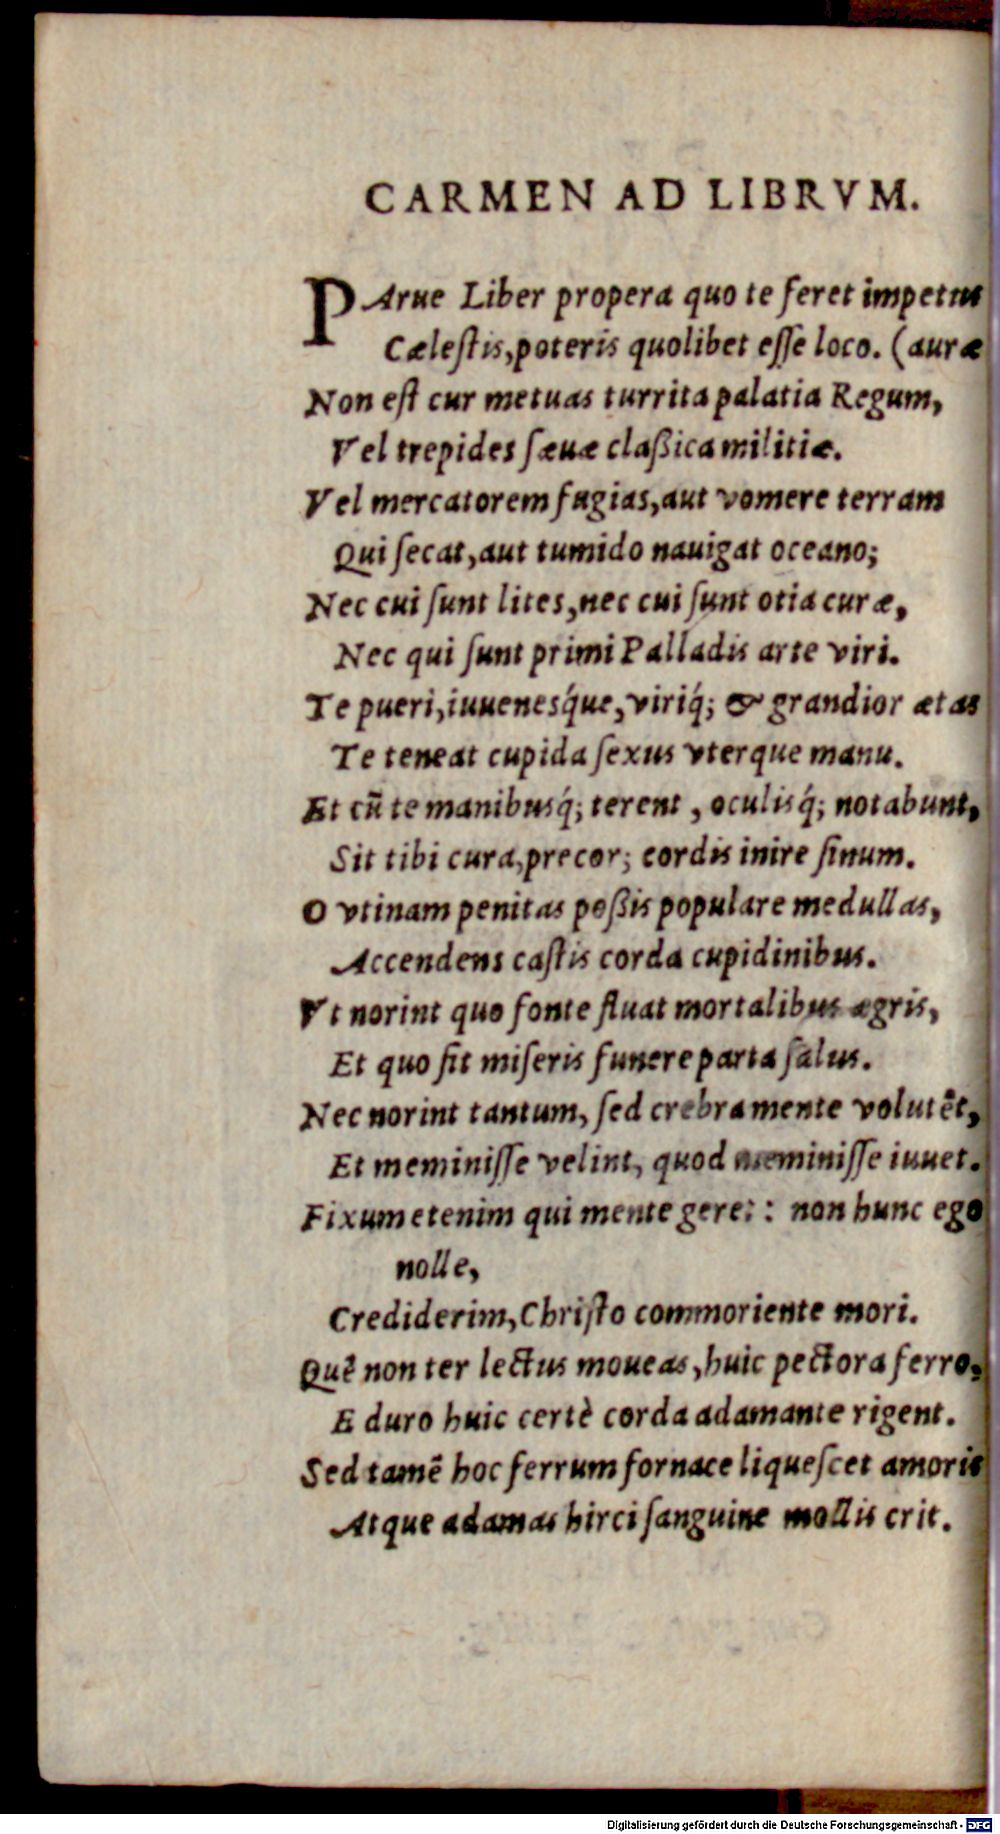 CARMEN AD LIBRVM.
PArue Liber propera quo te feret impetus
Cæleſtis, poteris quolibet eſſe loco. (auræ
Non eſt cur metuas turrita palatia Regum,
Vel trepides ſæuæ claßica militiæ.
Vel mercatorem fugias, aut vomere terram
Qui ſecat, aut tumido nauigat oceano;
Nec cui ſunt lites, nec cui ſunt otia curæ,
Nec qui ſunt primi Palladis arte viri.
Te pueri, iuuenesq́ue, viriq́; & grandior ætas
Te teneat cupida ſexus vterque manu.
Et cũ te manibusq́; terent, oculisq́; notabunt,
Sit tibi cura, precor; cordis inire ſinum.
O vtinam penitas poßis populare medullas,
Accendens caſtis corda cupidinibus.
Vt norint quo fonte fluat mortalibus ægris,
Et quo ſit miſeris funere parta ſalus.
Nec norint tantum, ſed crebra mente volutẽt,
Et meminiſſe velint, quod meminiſſe iuuet.
Fixum etenim qui mente geret: non hunc ego
nolle,
Crediderim, Chriſto commoriente mori.
Quẽ non ter lectus moueas, huic pectora ferro,
E duro huic certè corda adamante rigent.
Sed tamẽ hoc ferrum fornace liqueſcet amoris
Atque adamas hirci ſanguine mollis erit.
Digitalisierung gefördert durch die Deutsche Forschungsgemeinschaft - DFG